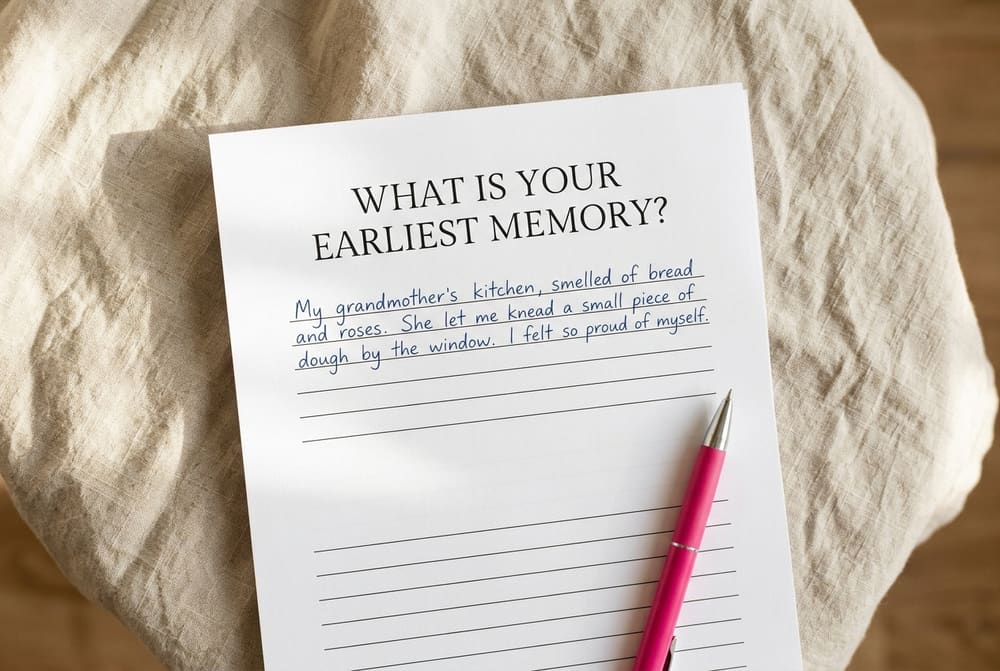 WHAT IS YOUR
EARLIEST MEMORY?
My grandmother's kitchen, smelled of bread
and roses. She let me knead a small piece of
dough by the window. I felt so proud of myself.